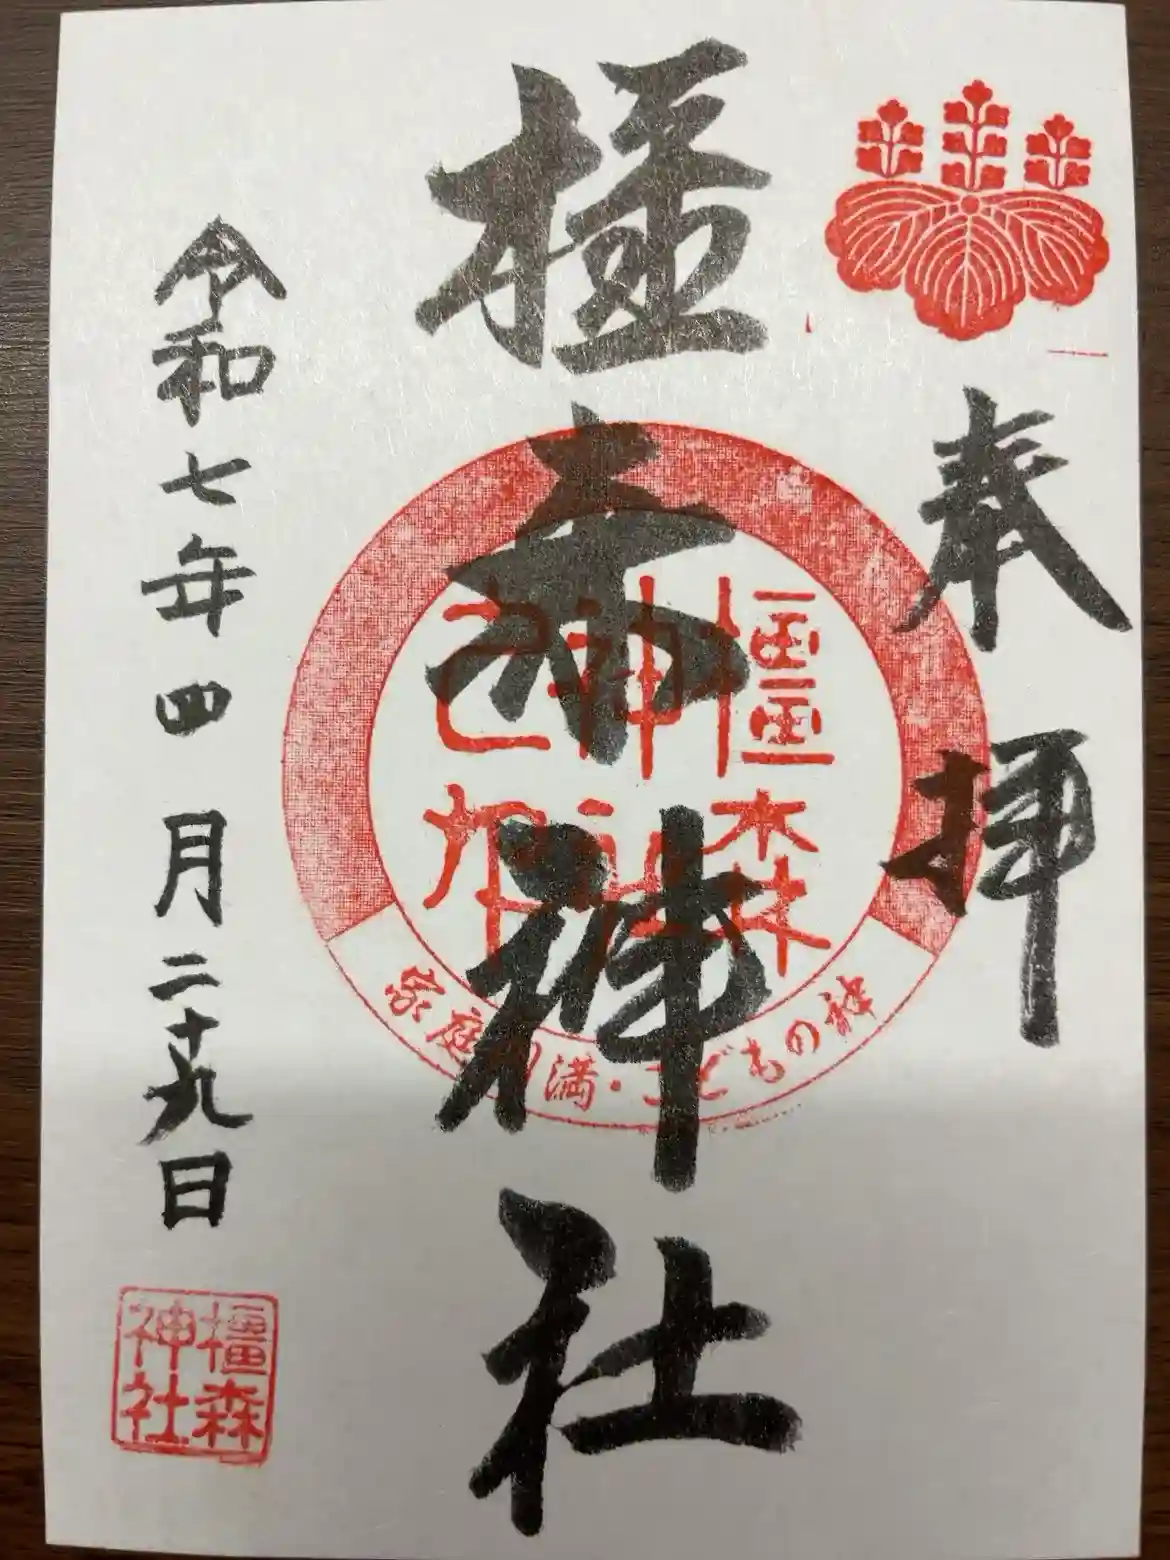 奉拝
橿森神社
橿森
神社
之印
家庭円満・こどもの神
令和七年四月二十九日
橿森
神社